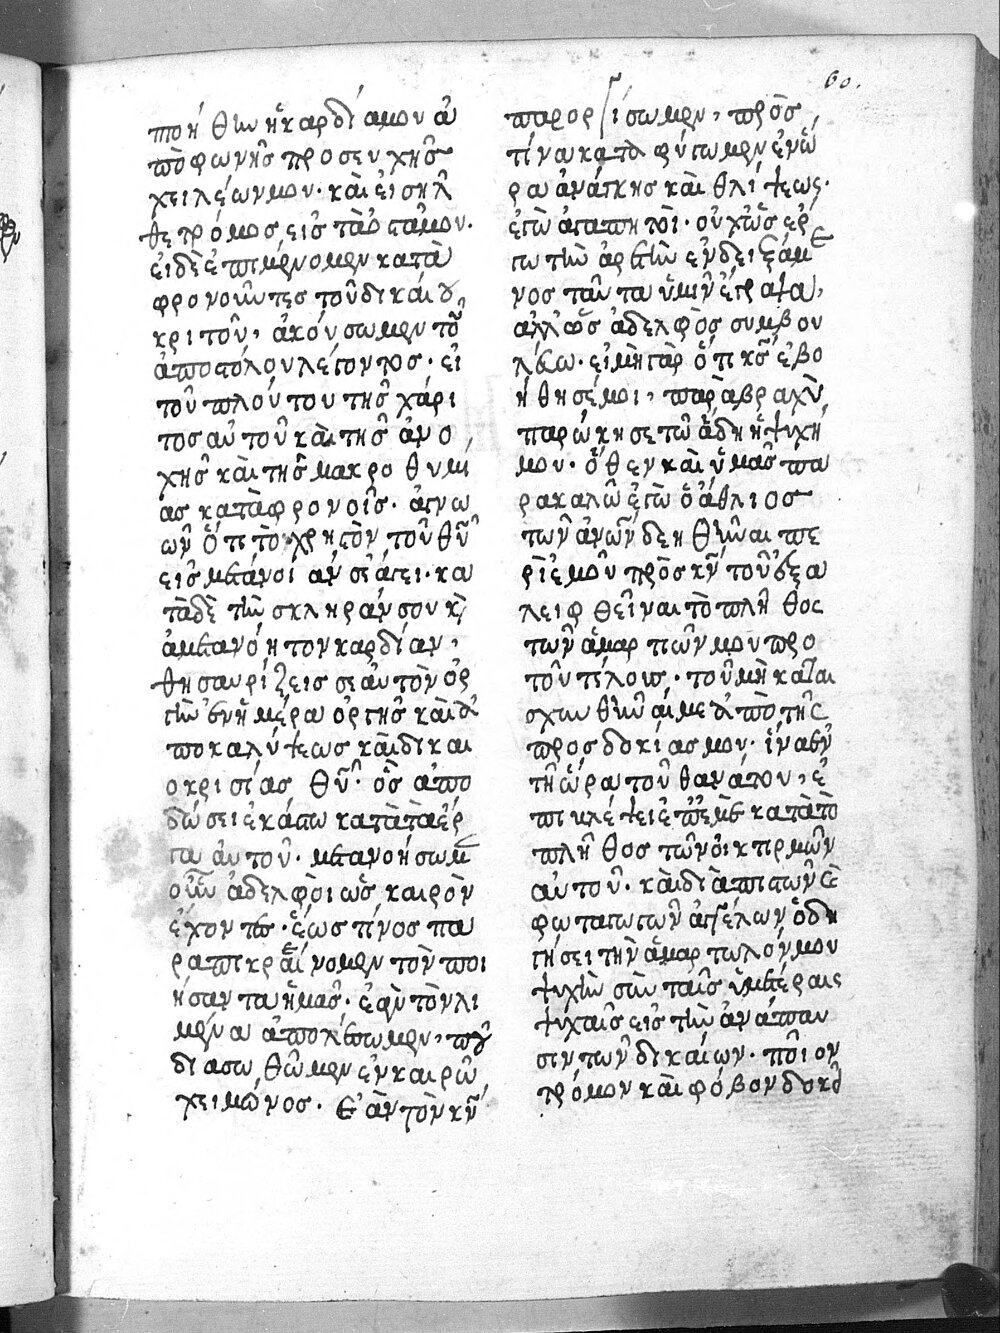 60.
ποή θην ἡ καρδία μου ἀ
πὸ φωνῆς προσευχῆς
χειλέων μου· καὶ εἰσῆλ
θε τρόμος εἰς τὰ ὀστᾶ μου.
εἰ δὲ ἐπιμένομεν κατα
φρονοῦντες τοῦ δικαίου
κριτοῦ, ἀκούσωμεν τοῦ
ἀποστόλου λέγοντος· εἰ
τοῦ πλούτου τῆς χάρι
τος αὐτοῦ καὶ τῆς ἀνο
χῆς καὶ τῆς μακροθυμί
ας καταφρονοῖς· ἀγνο
ῶν ὅτι τὸ χρηστὸν τοῦ θῦ
εἰς μετάνοιάν σε ἄγει· κα
τὰ δὲ τὴν σκληράν σου κ
ἀμετανόητον καρδίαν,
θησαυρίζεις σεαυτὸν ὀρ
γὴν ἐν ἡμέρα ὀργῆς καὶ ἀ
ποκαλύψεως καὶ δικαι
οκρισίας θῦ· ὃς ἀπο
δώσει ἑκάστω κατὰ τὰ ἔρ
γα αὐτοῦ· μετανοήσωμεν
οὖν ἀδελφοὶ ὡς καιρὸν
ἔχοντες· ἕως τίνος πα
ραπικραίνομεν τὸν ποι
ήσαντα ἡμᾶς· ἐὰν τὸν λι
μένα ἀπολέσωμεν, ποῦ
διασωθῶμεν ἐν καιρῶ
χειμῶνος· ἐὰν τὸν κν
παροργίσωμεν, πρὸς
τίνα καταφύγωμεν ἐν ὥ
ρα ἀνάγκης καὶ θλίψεως·
ἐγὼ ἀγαπητοὶ· οὐχ ὡς ἔρ
γω τὴν ἀρετὴν ἐνδειξάμε
νος ταῦτα ὑμῖν ἔγραψα,
ἀλλ' ὡς ἀδελφὸς συμβου
λεύω· εἰ μὴ γὰρ ὅτι κς ἐβο
ήθησέ μοι, παρὰ βραχὺ
παρώκησε τῶ ἅδη ἡ ψυχή
μου· ὅθεν καὶ ὑμᾶς πα
ρακαλῶ ἐγὼ ὁ ἄθλιος
τῶν ἀνῶν δεηθῆναι πε
ρὶ ἐμοῦ πρὸς κν τοῦ ἐξα
λειφθεῖναι τὸ πλῆθος
τῶν ἁμαρτιῶν μου πρὸ
τοῦ τέλους· τοῦ μὴ καται
σχυνθῆναί με ἀπὸ τῆς
προσδοκίας μου· ἵνα ἐν
τῆ ὥρα τοῦ θανάτου, ἐ
πιβλέψει ἐπ' ἐμὲ κατὰ τὸ
πλῆθος τῶν οἰκτιρμῶν
αὐτοῦ· καὶ διὰ τῶν
φωταγωγῶν ἀγγέλων ὁδη
γήσει τὴν ἁμαρτωλόν μου
ψυχὴν σὺν ταῖς ὑμετέραις
ψυχαῖς εἰς τὴν ἀνάπαυ
σιν τῶν δικαίων· ποῖον
τρόμον καὶ φόβον δοκ